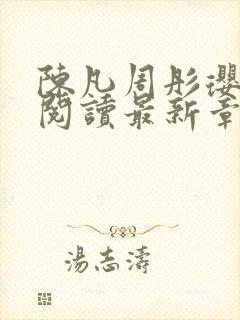 陳凡周彤瓔
閱讀最新章
湯志濤